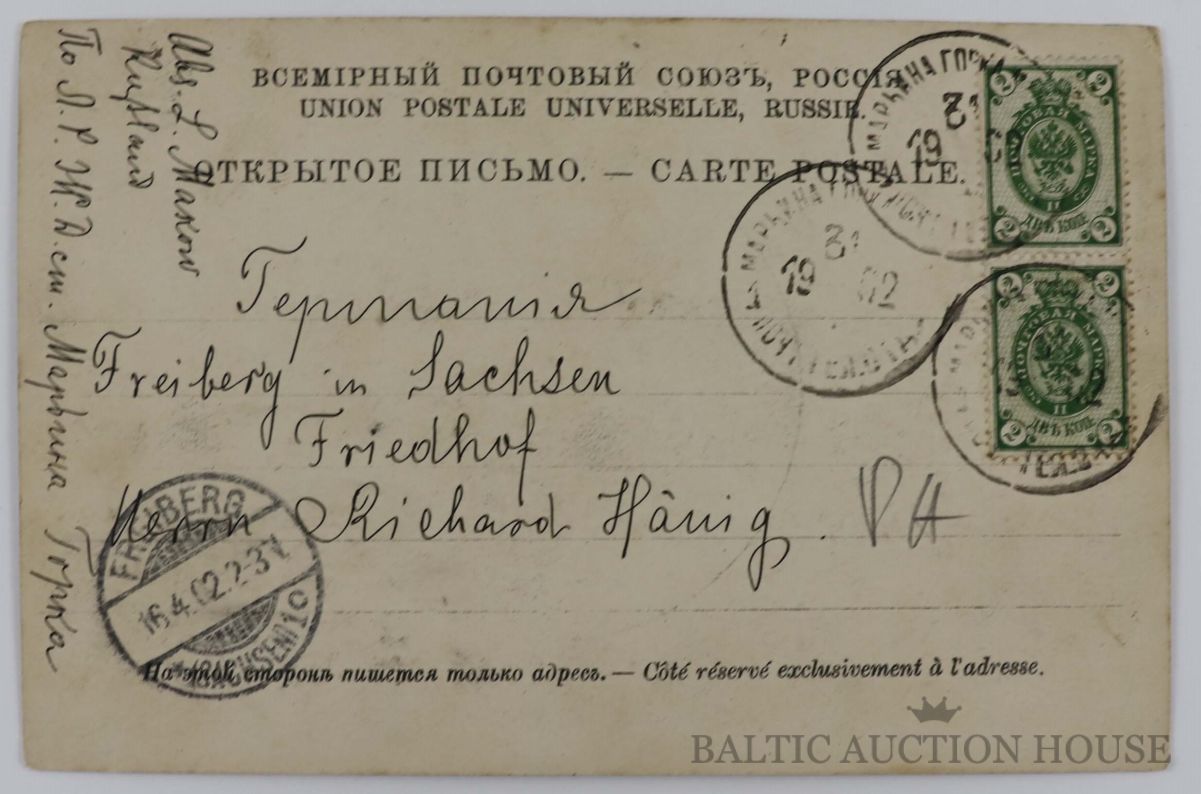 ВСЕМІРНЫЙ ПОЧТОВЫЙ СОЮЗЪ, РОССІЯ.
UNION POSTALE UNIVERSELLE, RUSSIE.
ОТКРЫТОЕ ПИСЬМО. — CARTE POSTALE.
Abs. L. Makow
Rußland
По Л. Р. Ж. Д. ст. Марьина Горка
Германія
Freiberg in Sachsen
Friedhof
Herrn Richard Hänig.
МАРЬИНА ГОРКА
31
19
2 2
ПОЧТОВАЯ МАРКА
II
ДВѢ КОП.
2 2
МАРЬИНА ГОР
ПОЧТ
31
19 02
2 2
ПОЧТОВАЯ МАРКА
II
ДВѢ КОП.
2 2
FREIBERG
16.4.02.2-3N.
(SACHSEN) 1c
На этой сторонѣ пишется только адресъ. — Côté réservé exclusivement à l'adresse.
BALTIC AUCTION HOUSE